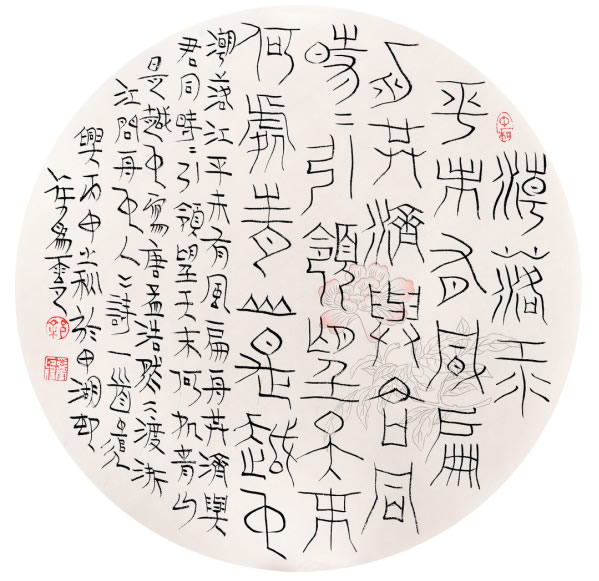 潮落江
平未有風扁
舟共濟與君同
時〻引領望天末
何處青山是越中
潮落江平未有風扁舟共濟與
君同時〻引領望天末何処青山
是越中寫唐孟浩然之渡浙
江問舟中人之詩一首遣
興丙申之秋於